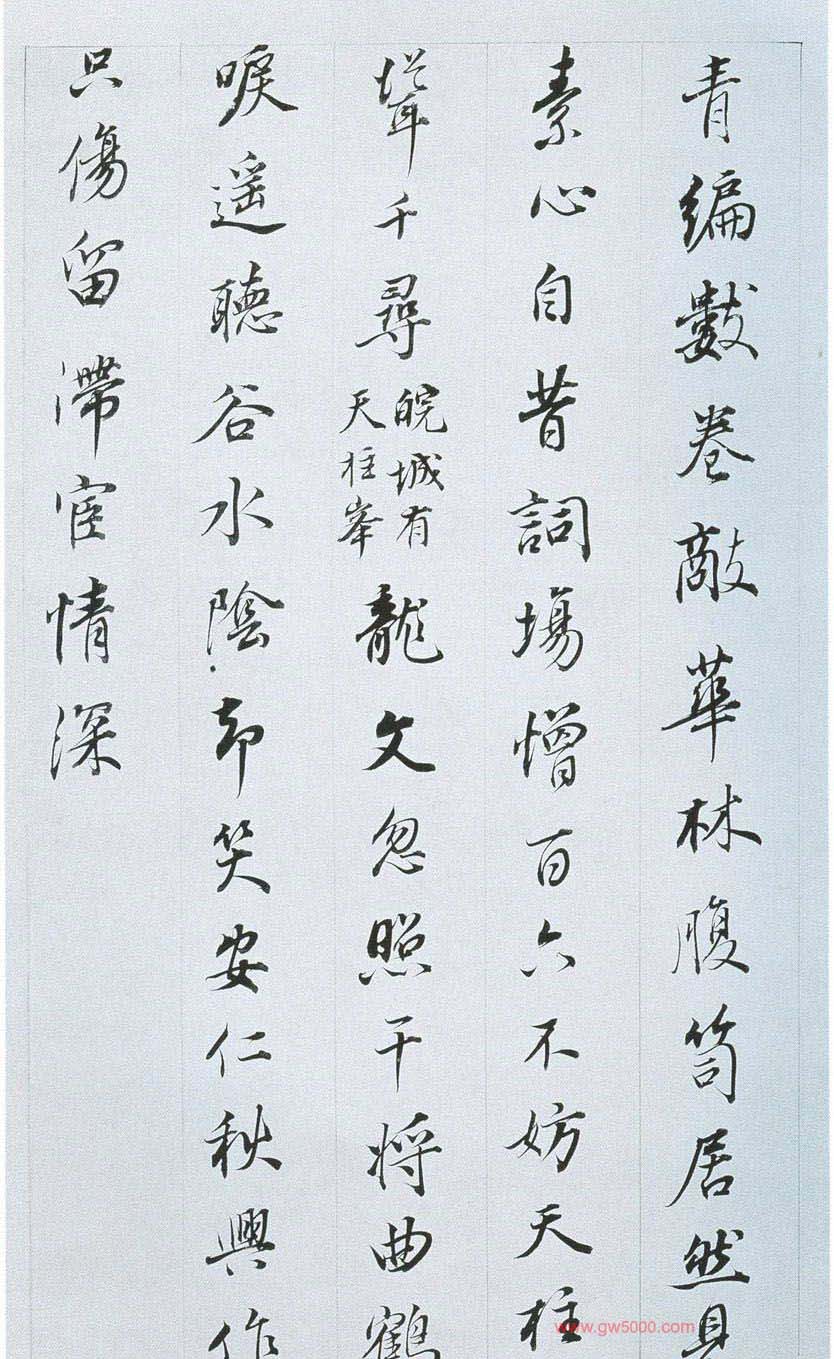 青編數卷敵華林腹笥居然見
素心自昔詞場憎百六不妨天柱
聳千尋皖城有天柱峯龍文忽照干將曲鶴
唳遥聽谷水陰却笑安仁秋興作
只傷留滯宦情深
www.gw5000.com